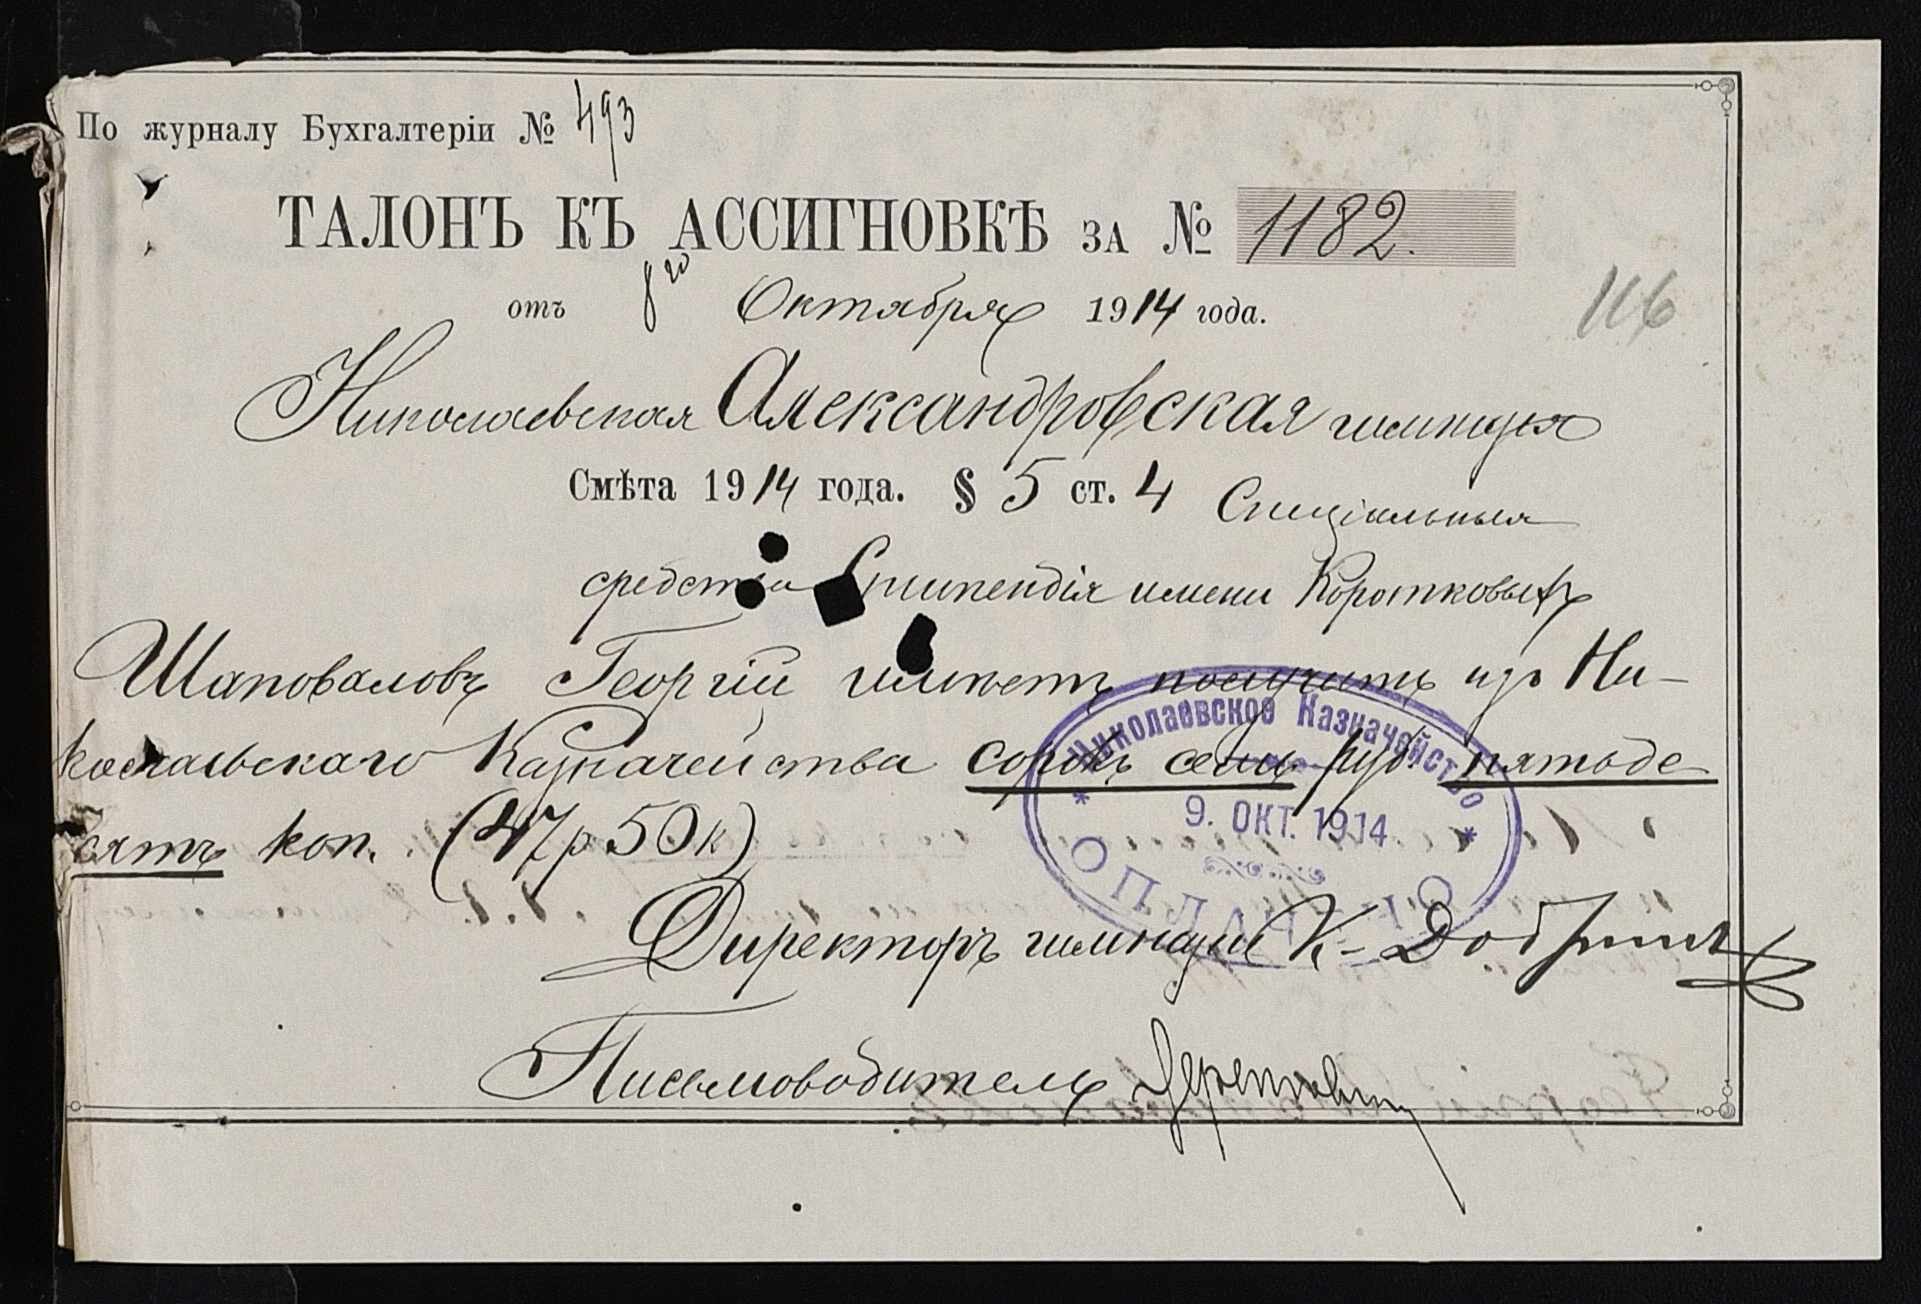 По журналу Бухгалтеріи № 493
ТАЛОНЪ КЪ АССИГНОВКѢ за № 1182.
отъ 8го Октября 1914 года.
116
Николаевская Александровская гимназия
Смѣта 1914 года. § 5 ст. 4 Спеціальныя
средства Стипендія имени Коротковыхъ
Шаповаловъ Георгій имѣетъ получить изъ Ни-
колаевскаго Казначейства сорокъ семь руб. пятьде
сятъ коп. (47р 50к)
Николаевское Казначейство
9. ОКТ. 1914
ОПЛАЧЕНО
Директоръ гимназіи К.
Письмоводитель